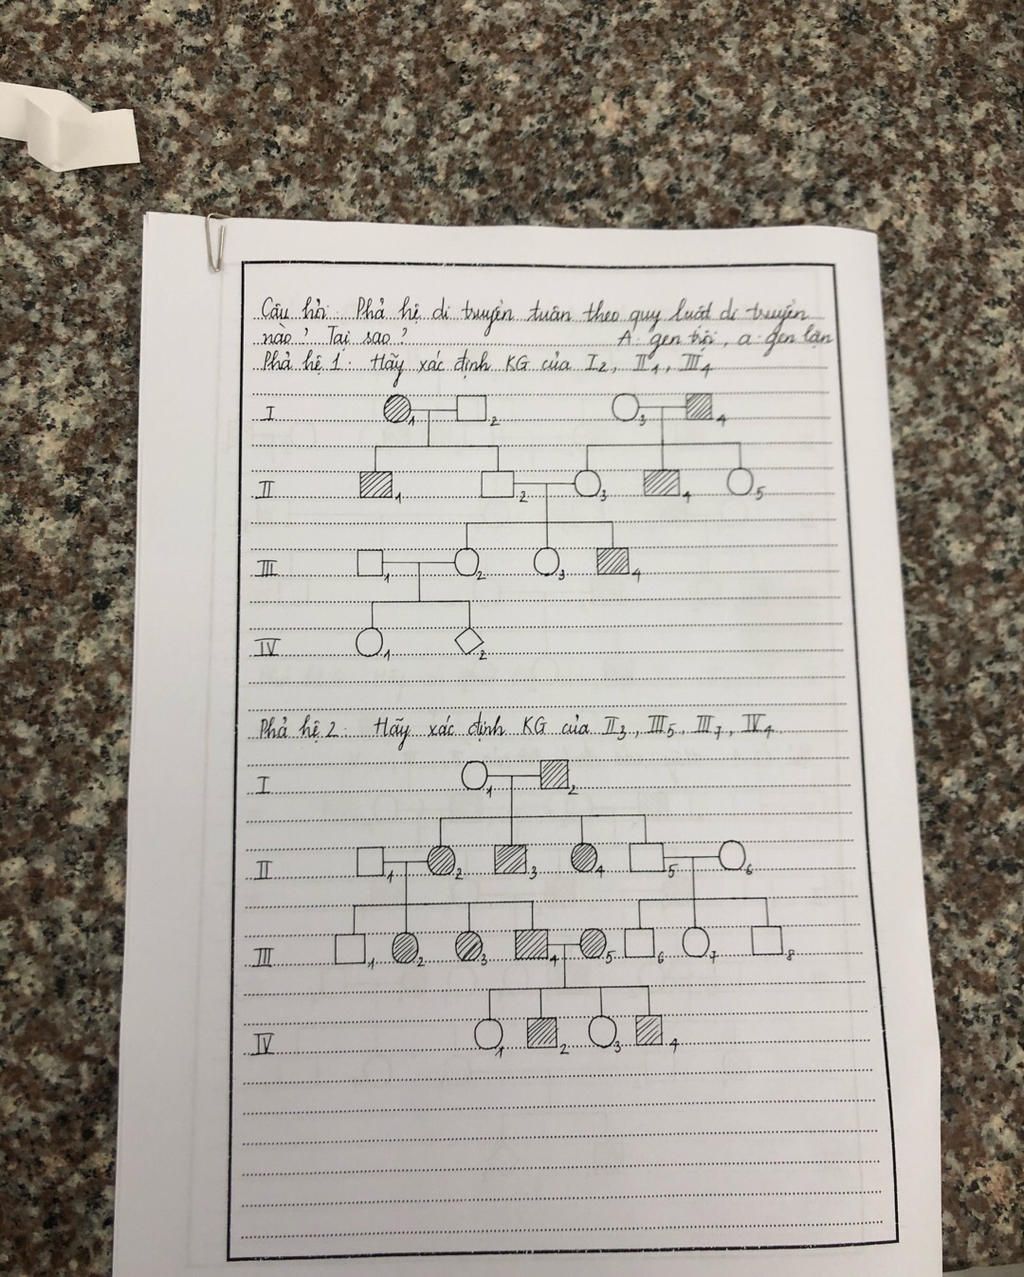 Câu hỏi: Phả hệ di truyền tuân theo quy luật di truyền
nào? Tại sao? A: gen trội, a: gen lặn
Phả hệ 1: Hãy xác định KG của I2, II1, III4
I 1 2 3 4
II 1 2 3 4 5
III 1 2 3 4
IV 1 2
Phả hệ 2: Hãy xác định KG của II3, III5, III7, IV4.
I 1 2
II 1 2 3 4 5 6
III 1 2 3 4 5 6 7 8
IV 1 2 3 4